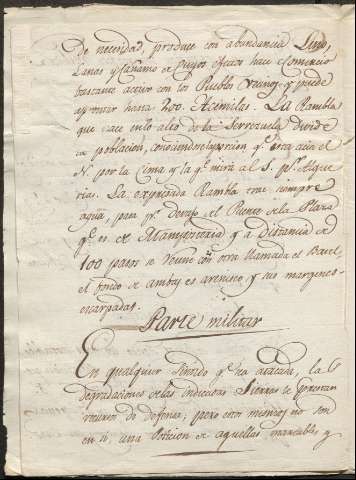 De necesidad, produce con abundancia Lino,
Lanas y Cañamo de cuyos efectos hace Comercio
bastante activo con los Pueblos Vecinos y puede
aprontar hasta 200 Acemilas. La Rambla
que nace en lo alto de la Serrezuela divide
la poblacion, conociendose la porcion qe. esta acia el
N. por la Cima y la qe. mira al S. pr. Alque
rias. La expresada Rambla trae siempre
agua, pasa pr. devajo el Puente de la Plaza
qe. es de Mamposteria y a distancia de
100 pasos se reune con otra llamada el Barel,
el fondo de ambas es arenisco y sus margenes
escarpadas.
Parte militar
En qualquier sentido qe. sea atacada, las
degradaciones de las indicadas Sierras le prestan
recursos de defensa; pero estos mismos no son
en si, una Posicion de aquellas marcables y